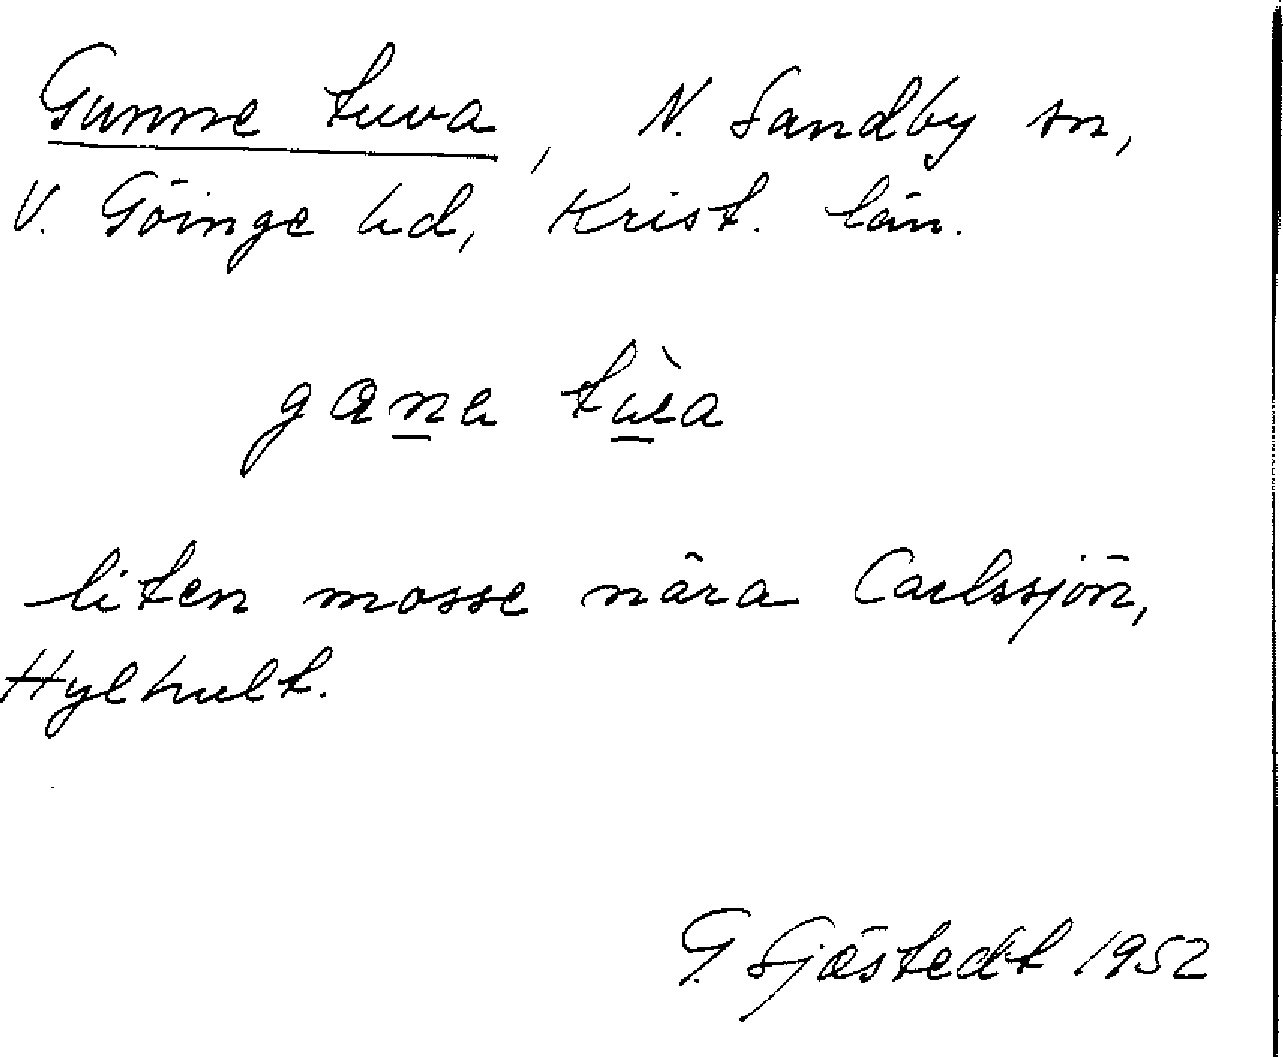 Gunne tuva, N. Sandby sn,
V. Göinge hd, Krist. län.
liten mosse nära Carlssjön,
Hylhult.
G. Sjöstedt 1952